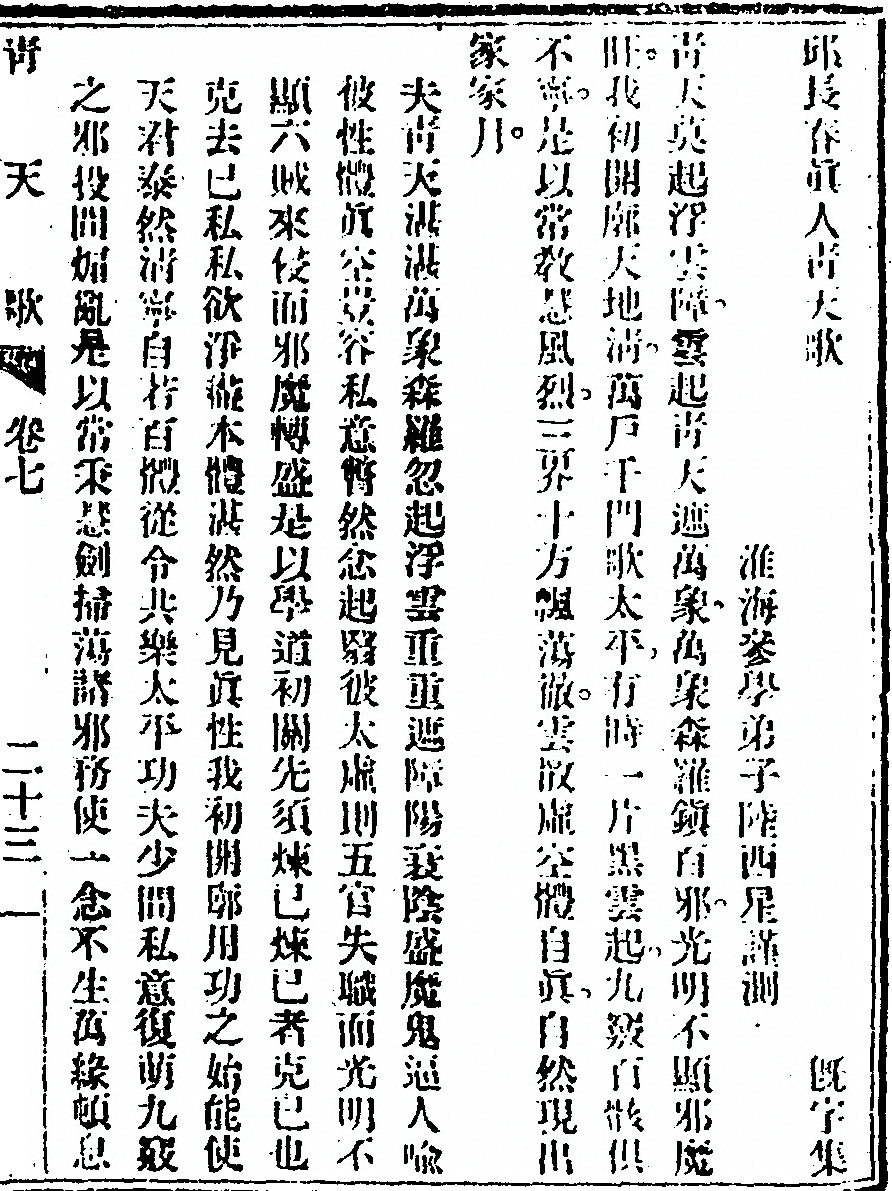 邱長春眞人青天歌　旣字集
淮海參學弟子陸西星謹測
青天莫起浮雲障雲起青天遮萬象萬象森羅鎭百邪光明不顯邪魔
旺我初開廓天地淸萬戶千門歌太平有時一片黑雲起九竅百骸俱
不寧是以常敎慧風烈三界十方飄蕩徹雲散虛空體自眞自然現出
家家月
夫青天湛湛萬象森羅忽起浮雲重重遮障陽衰陰盛魔鬼逼人喩
彼性體眞空豈容私意暫然念起翳彼太虛則五官失職而光明不
顯六賊來侵而邪魔轉盛是以學道初關先須煉已煉已者克已也
克去已私私欲淨盡本體湛然乃見眞性我初開廓用功之始能使
天君泰然淸寧自若百體從令共樂太平功夫少間私意復萌九竅
之邪投間煽亂是以常秉慧劍掃蕩諸邪務使一念不生萬緣頓息
青天歌　卷七　二十三